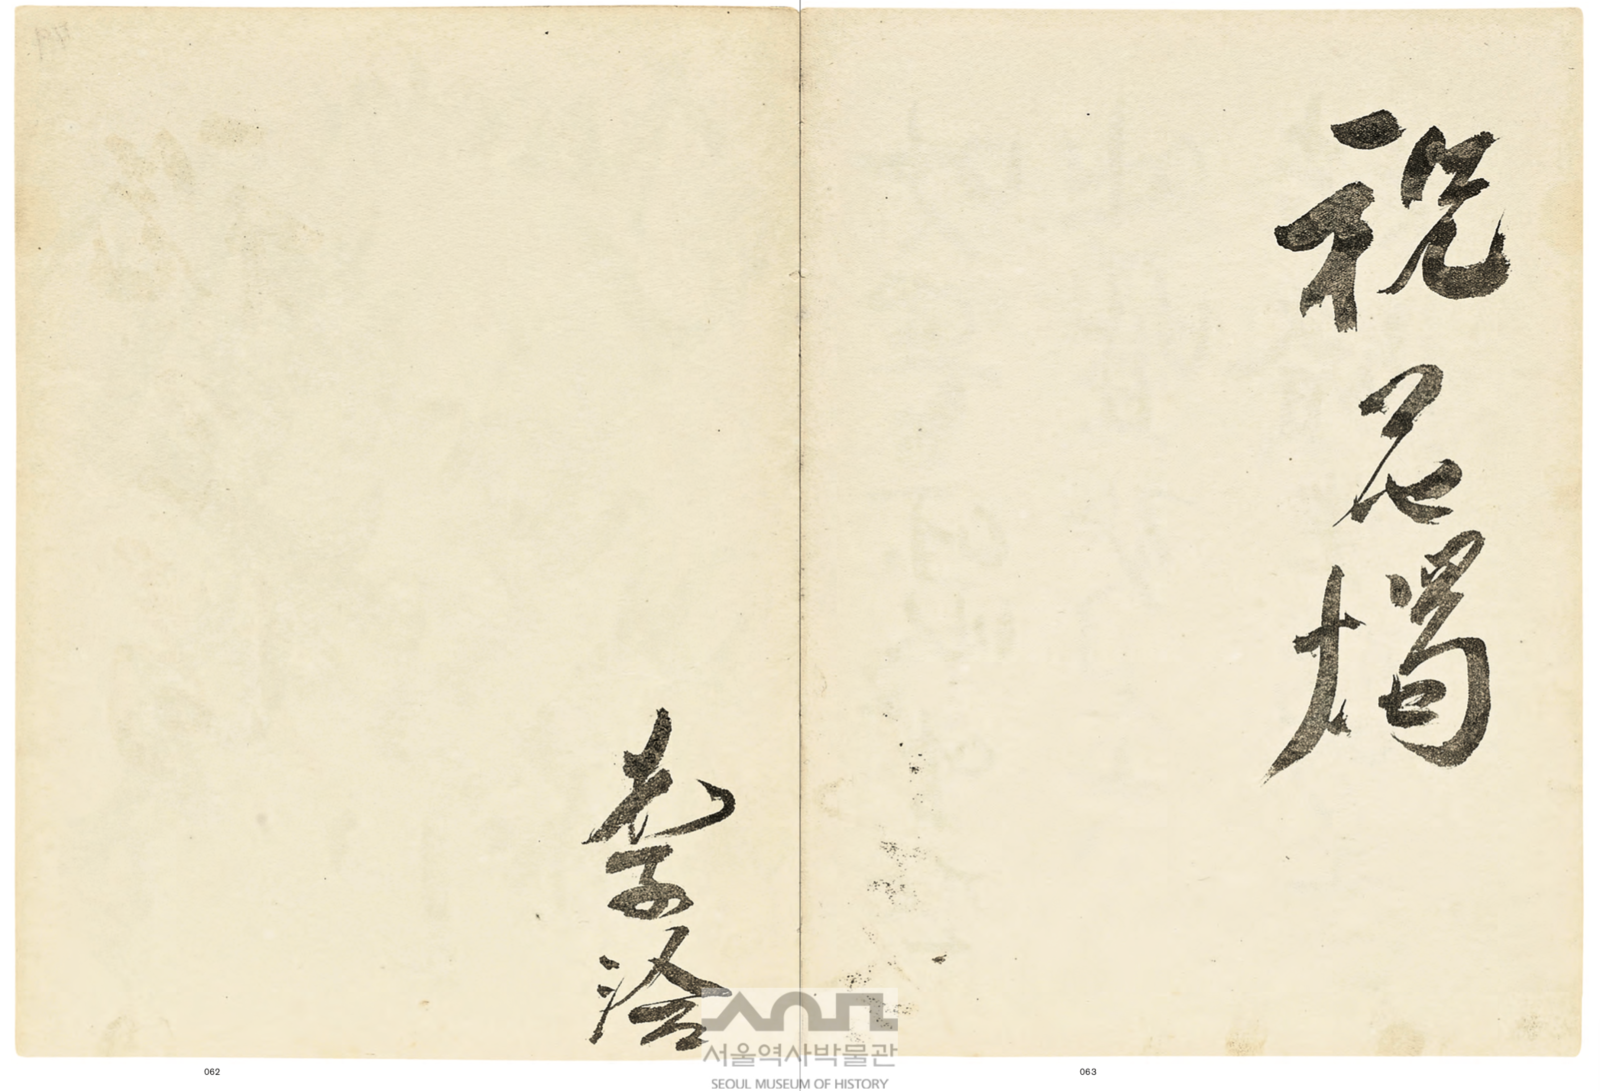 祝花燭
李洽
062
063
서울역사박물관
SEOUL MUSEUM OF HISTORY